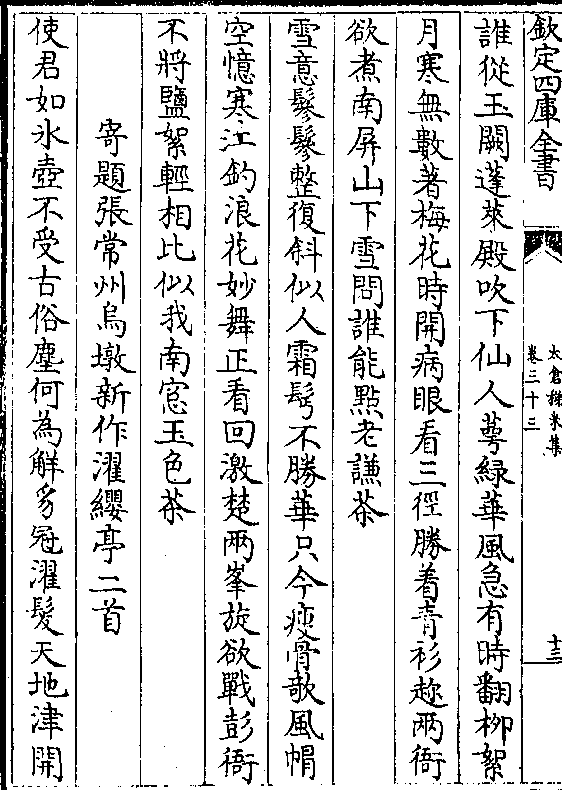 欽定四庫全書
太倉稊米集
卷三十三
十三
誰從玉闕蓬萊殿吹下仙人萼緑華風急有時翻柳絮
月寒無數著梅花時開病眼看三徑勝着青衫趂兩衙
欲煮南屏山下雪問誰能㸃老謙茶
雪意鬖鬖整復斜似人霜髩不勝華只今瘦骨欹風帽
空憶寒江釣浪花妙舞正看回激楚兩峯旋欲戰彭衙
不將鹽絮輕相比似我南窓玉色茶
寄題張常州烏墩新作濯纓亭二首
使君如氷壺不受古俗塵何為觧豸冠濯髮天地津開